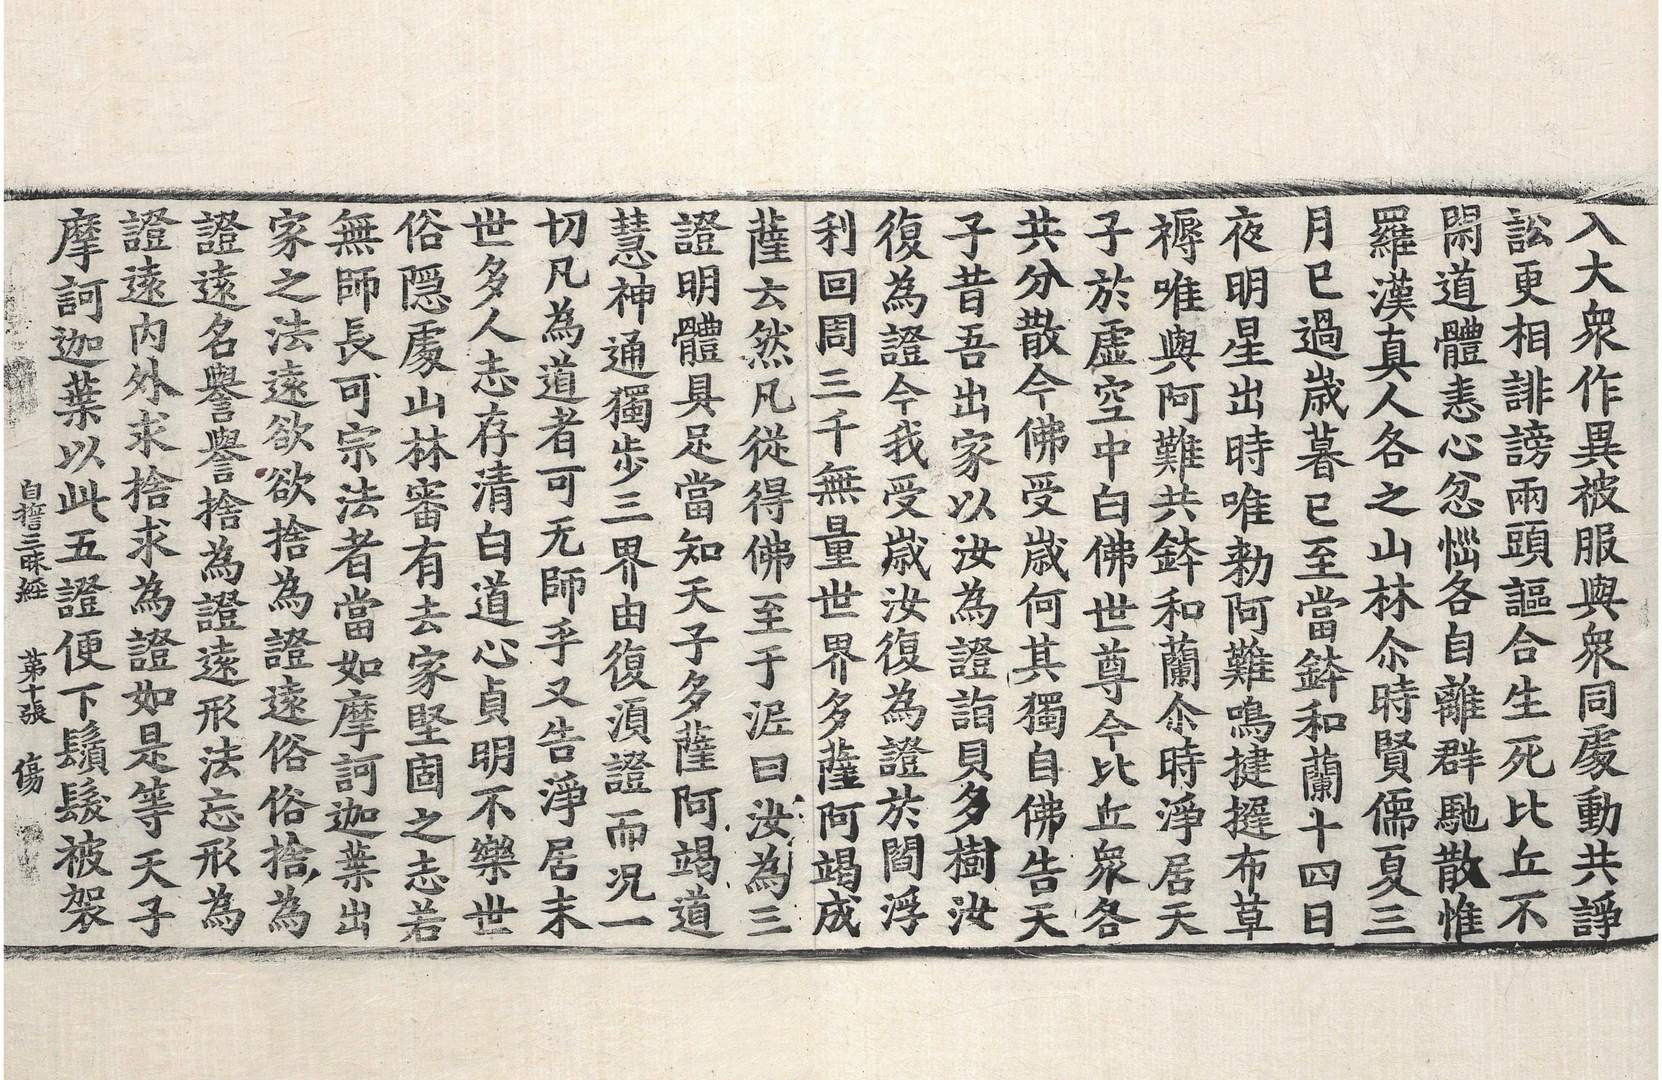 入大衆作異被服與衆同處動共諍
訟更相誹謗兩頭謳合生死比丘不
閙道體恚心忿惱各自離群馳散惟
羅漢真人各之山林尒時賢儒夏三
月已過歲暮已至當鉢和蘭十四日
夜明星出時唯勑阿難鳴揵搥布草
褥唯與阿難共鉢和蘭尒時淨居天
子於虛空中白佛世尊今比丘衆各
共分散今佛受歲何其獨自佛告天
子昔吾出家以汝為證詣貝多樹汝
復為證今我受歲汝復為證於閻浮
利回周三千無量世界多薩阿竭成
薩云然凡從得佛至于泥曰汝為三
證明體具足當知天子多薩阿竭道
慧神通獨步三界由復湏證而况一
切凡為道者可无師乎又告淨居末
世多人志存清白道心貞明不樂世
俗隱處山林審有去家堅固之志若
無師長可宗法者當如摩訶迦葉出
家之法遠欲欲捨為證遠俗俗捨為
證遠名譽譽捨為證遠形法忘形為
證遠內外求捨求為證如是等天子
摩訶迦葉以此五證便下鬚髮被袈
自誓三昧經 第十張 傷